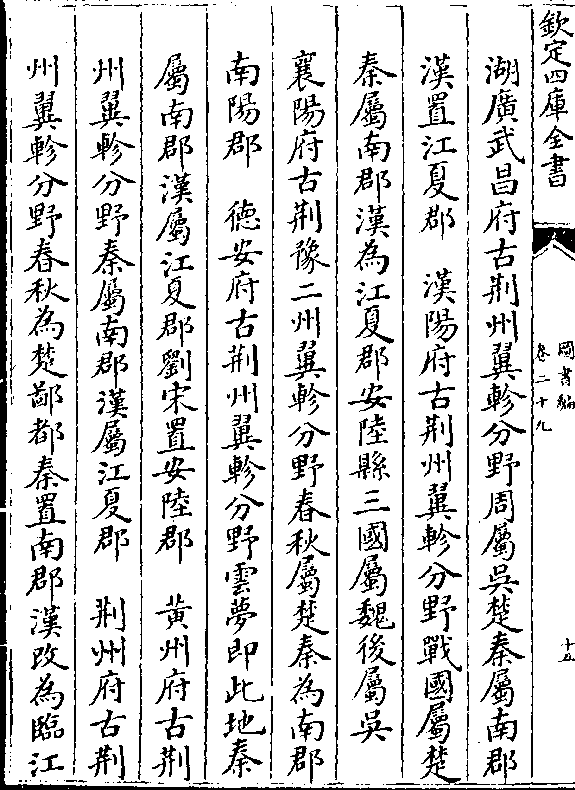 欽定四庫全書
圖書編
卷二十九
十五
湖廣武昌府古荆州翼軫分野周屬吳楚秦屬南郡
漢置江夏郡　漢陽府古荆州翼軫分野戰國屬楚
秦屬南郡漢為江夏郡安陸縣三國屬魏後屬吳
襄陽府古荆豫二州翼軫分野春秋屬楚秦為南郡
南陽郡　徳安府古荆州翼軫分野雲夢即此地秦
屬南郡漢屬江夏郡劉宋置安陸郡　黄州府古荆
州翼軫分野秦屬南郡漢屬江夏郡　荆州府古荆
州翼軫分野春秋為楚鄀都秦置南郡漢改為臨江